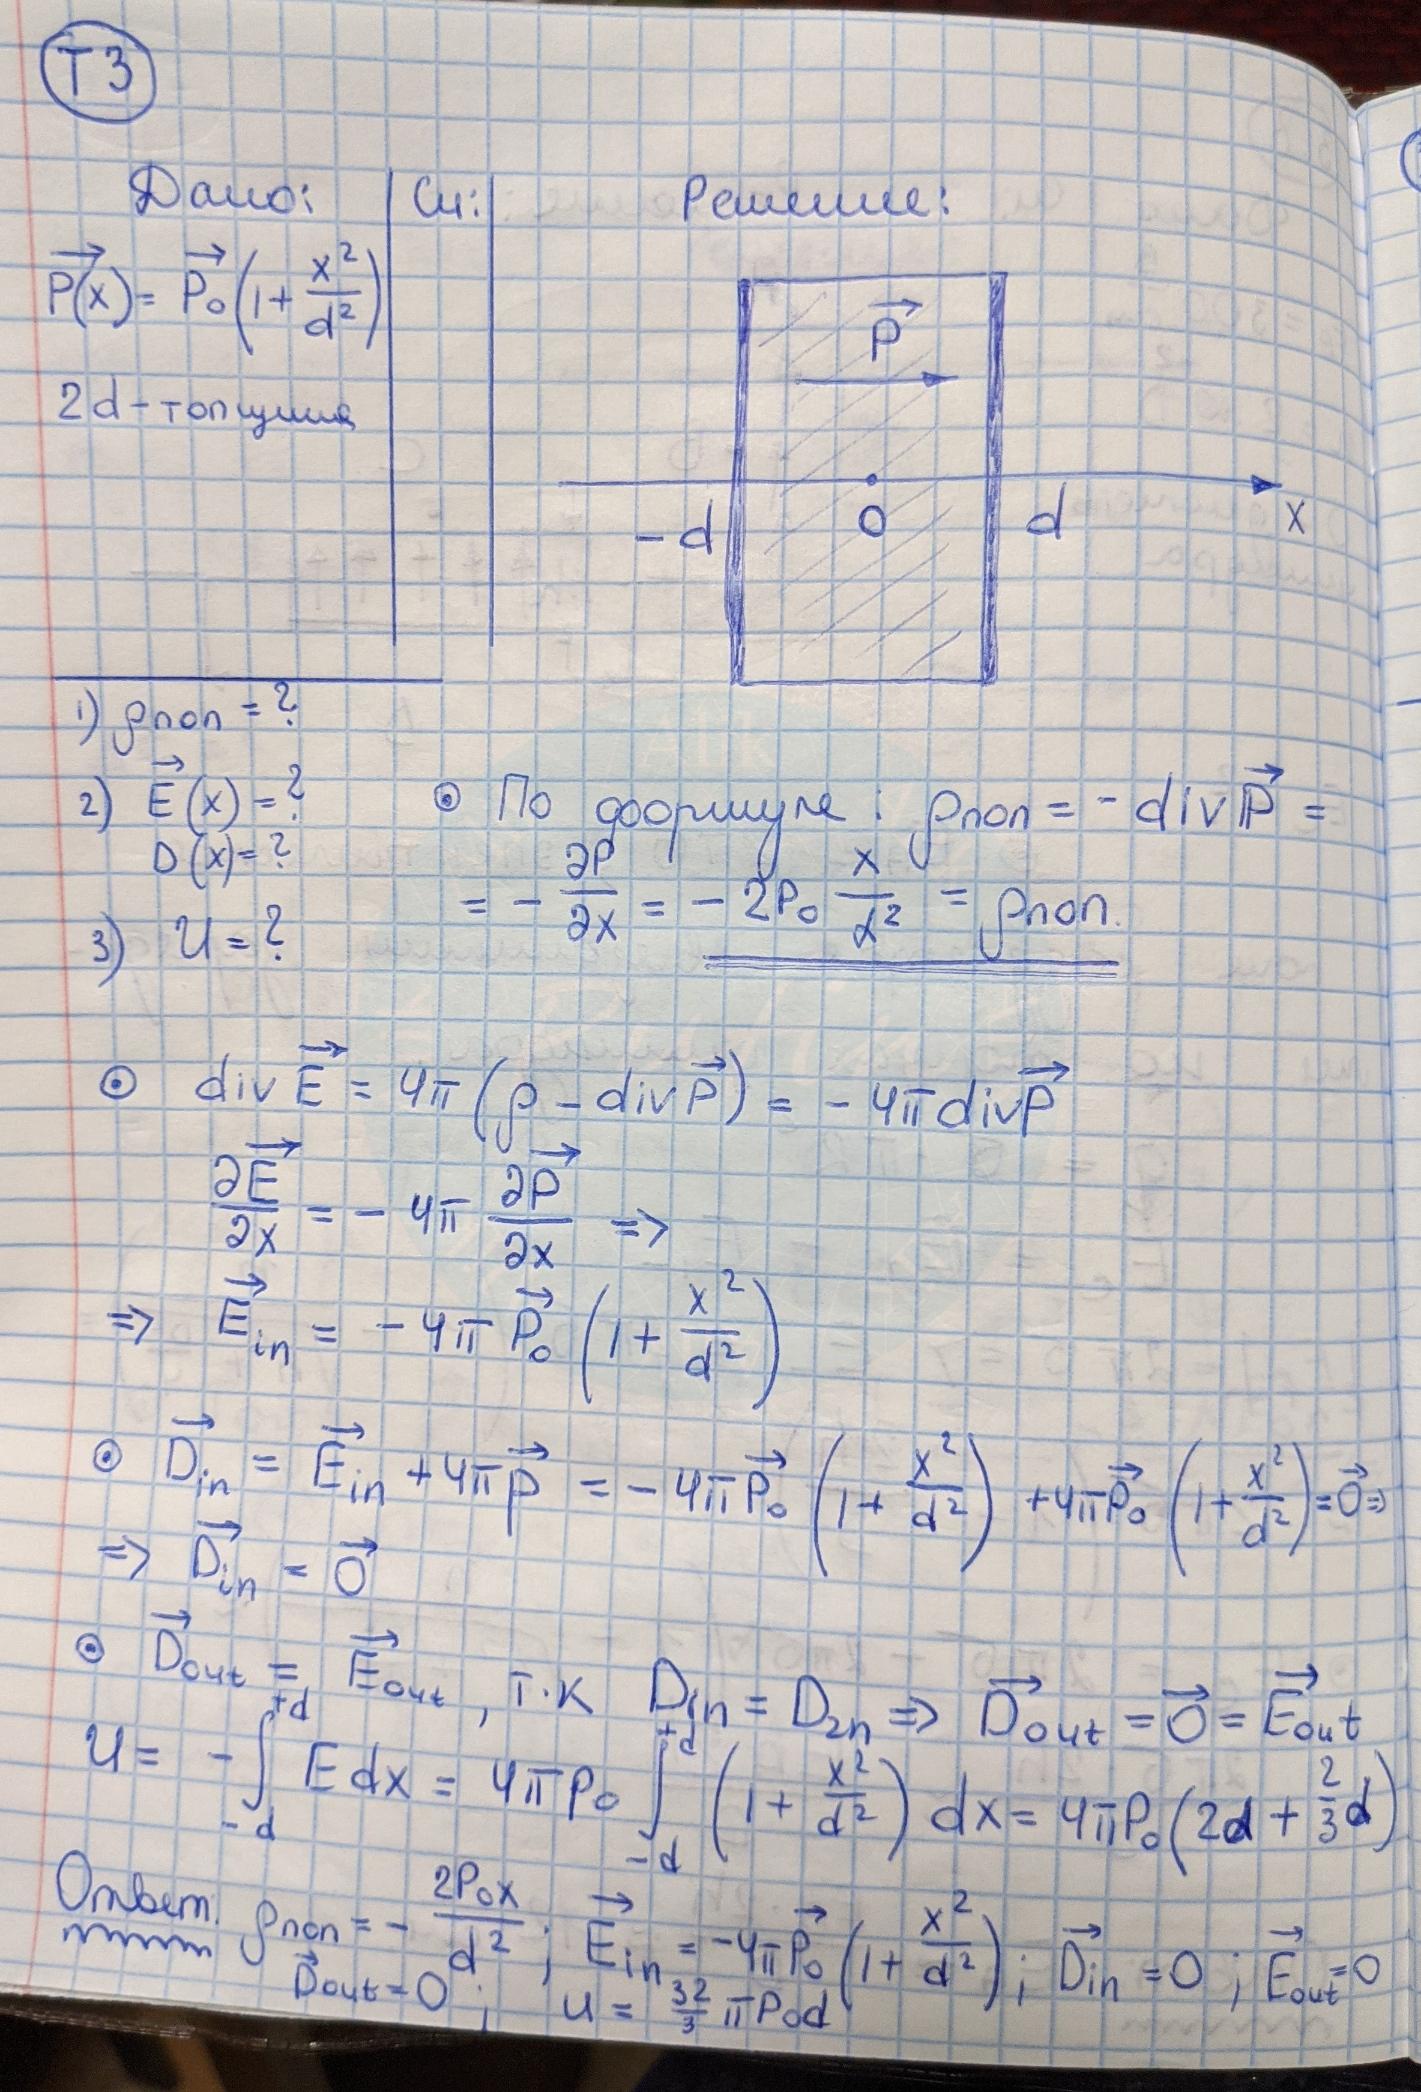 Т3
Дано: Си: Решение:
P⃗(x) = P⃗₀(1 + x²/d²)
2d - толщина
P⃗
-d 0 d x
1) ρпол = ?
2) E⃗(x) = ?
D(x) = ?
3) U = ?
⊙ По формуле: ρпол = - div P⃗ =
= - ∂P/∂x = - 2P₀ x/d² = ρпол.
⊙ div E⃗ = 4π(ρ - div P⃗) = - 4π div P⃗
∂E⃗/∂x = - 4π ∂P⃗/∂x =>
=> E⃗in = - 4π P⃗₀ (1 + x²/d²)
⊙ D⃗in = E⃗in + 4πP⃗ = - 4πP⃗₀ (1 + x²/d²) + 4πP⃗₀ (1 + x²/d²) = 0⃗ =>
=> D⃗in = 0⃗
⊙ D⃗out = E⃗out, т.к D₁n = D₂n => D⃗out = 0⃗ = E⃗out
U = - ∫₋d⁺d E dx = 4πP₀ ∫₋d⁺d (1 + x²/d²) dx = 4πP₀(2d + 2/3 d)
Ответ. ρпол = - 2P₀x/d² ; E⃗in = -4πP⃗₀(1 + x²/d²) ; D⃗in = 0 ; E⃗out = 0
D⃗out = 0 ; U = 32/3 πP₀d